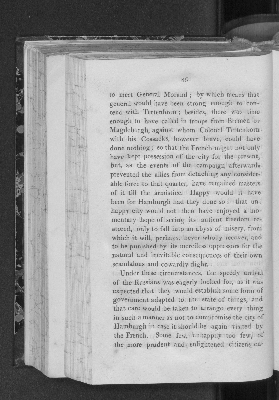 to meet General Morand; by which means that
general would have been strong enough to con-
tend with Tettenborn; besides, there was time
enough to have called in troops from Bremen or
Magdeburgh, against whom Colonel Tettenborn
with his Cossacks, however brave, could have
done nothing; so that the French might not only
have kept possession of the city for the present,
but, as the events of the campaign afterwards
prevented the allies from detaching any consider-
able force to that quarter, have remained masters
of it till the armistice. Happy would it have
been for Hamburgh had they done so! that un-
happy city would not then have enjoyed a mo-
mentary hope of seeing its ancient freedom re-
stored, only to fall into an abyss of misery, from
which it will, perhaps, never wholly recover, and
to be punished by its merciless oppressors for the
natural and inevitable consequences of their own
scandalous and cowardly flight.
Under these circumstances, the speedy arrival
of the Russians was eagerly looked for, as it was
expected that they would establish some form of
government adapted to the state of things, and
that care would be taken to arrange every thing
in such a manner as not to compromise the city of
Hamburgh in case it should be again visited by
the French. Some few, unhappily too few, of
the more prudent and enlightened citizens en-